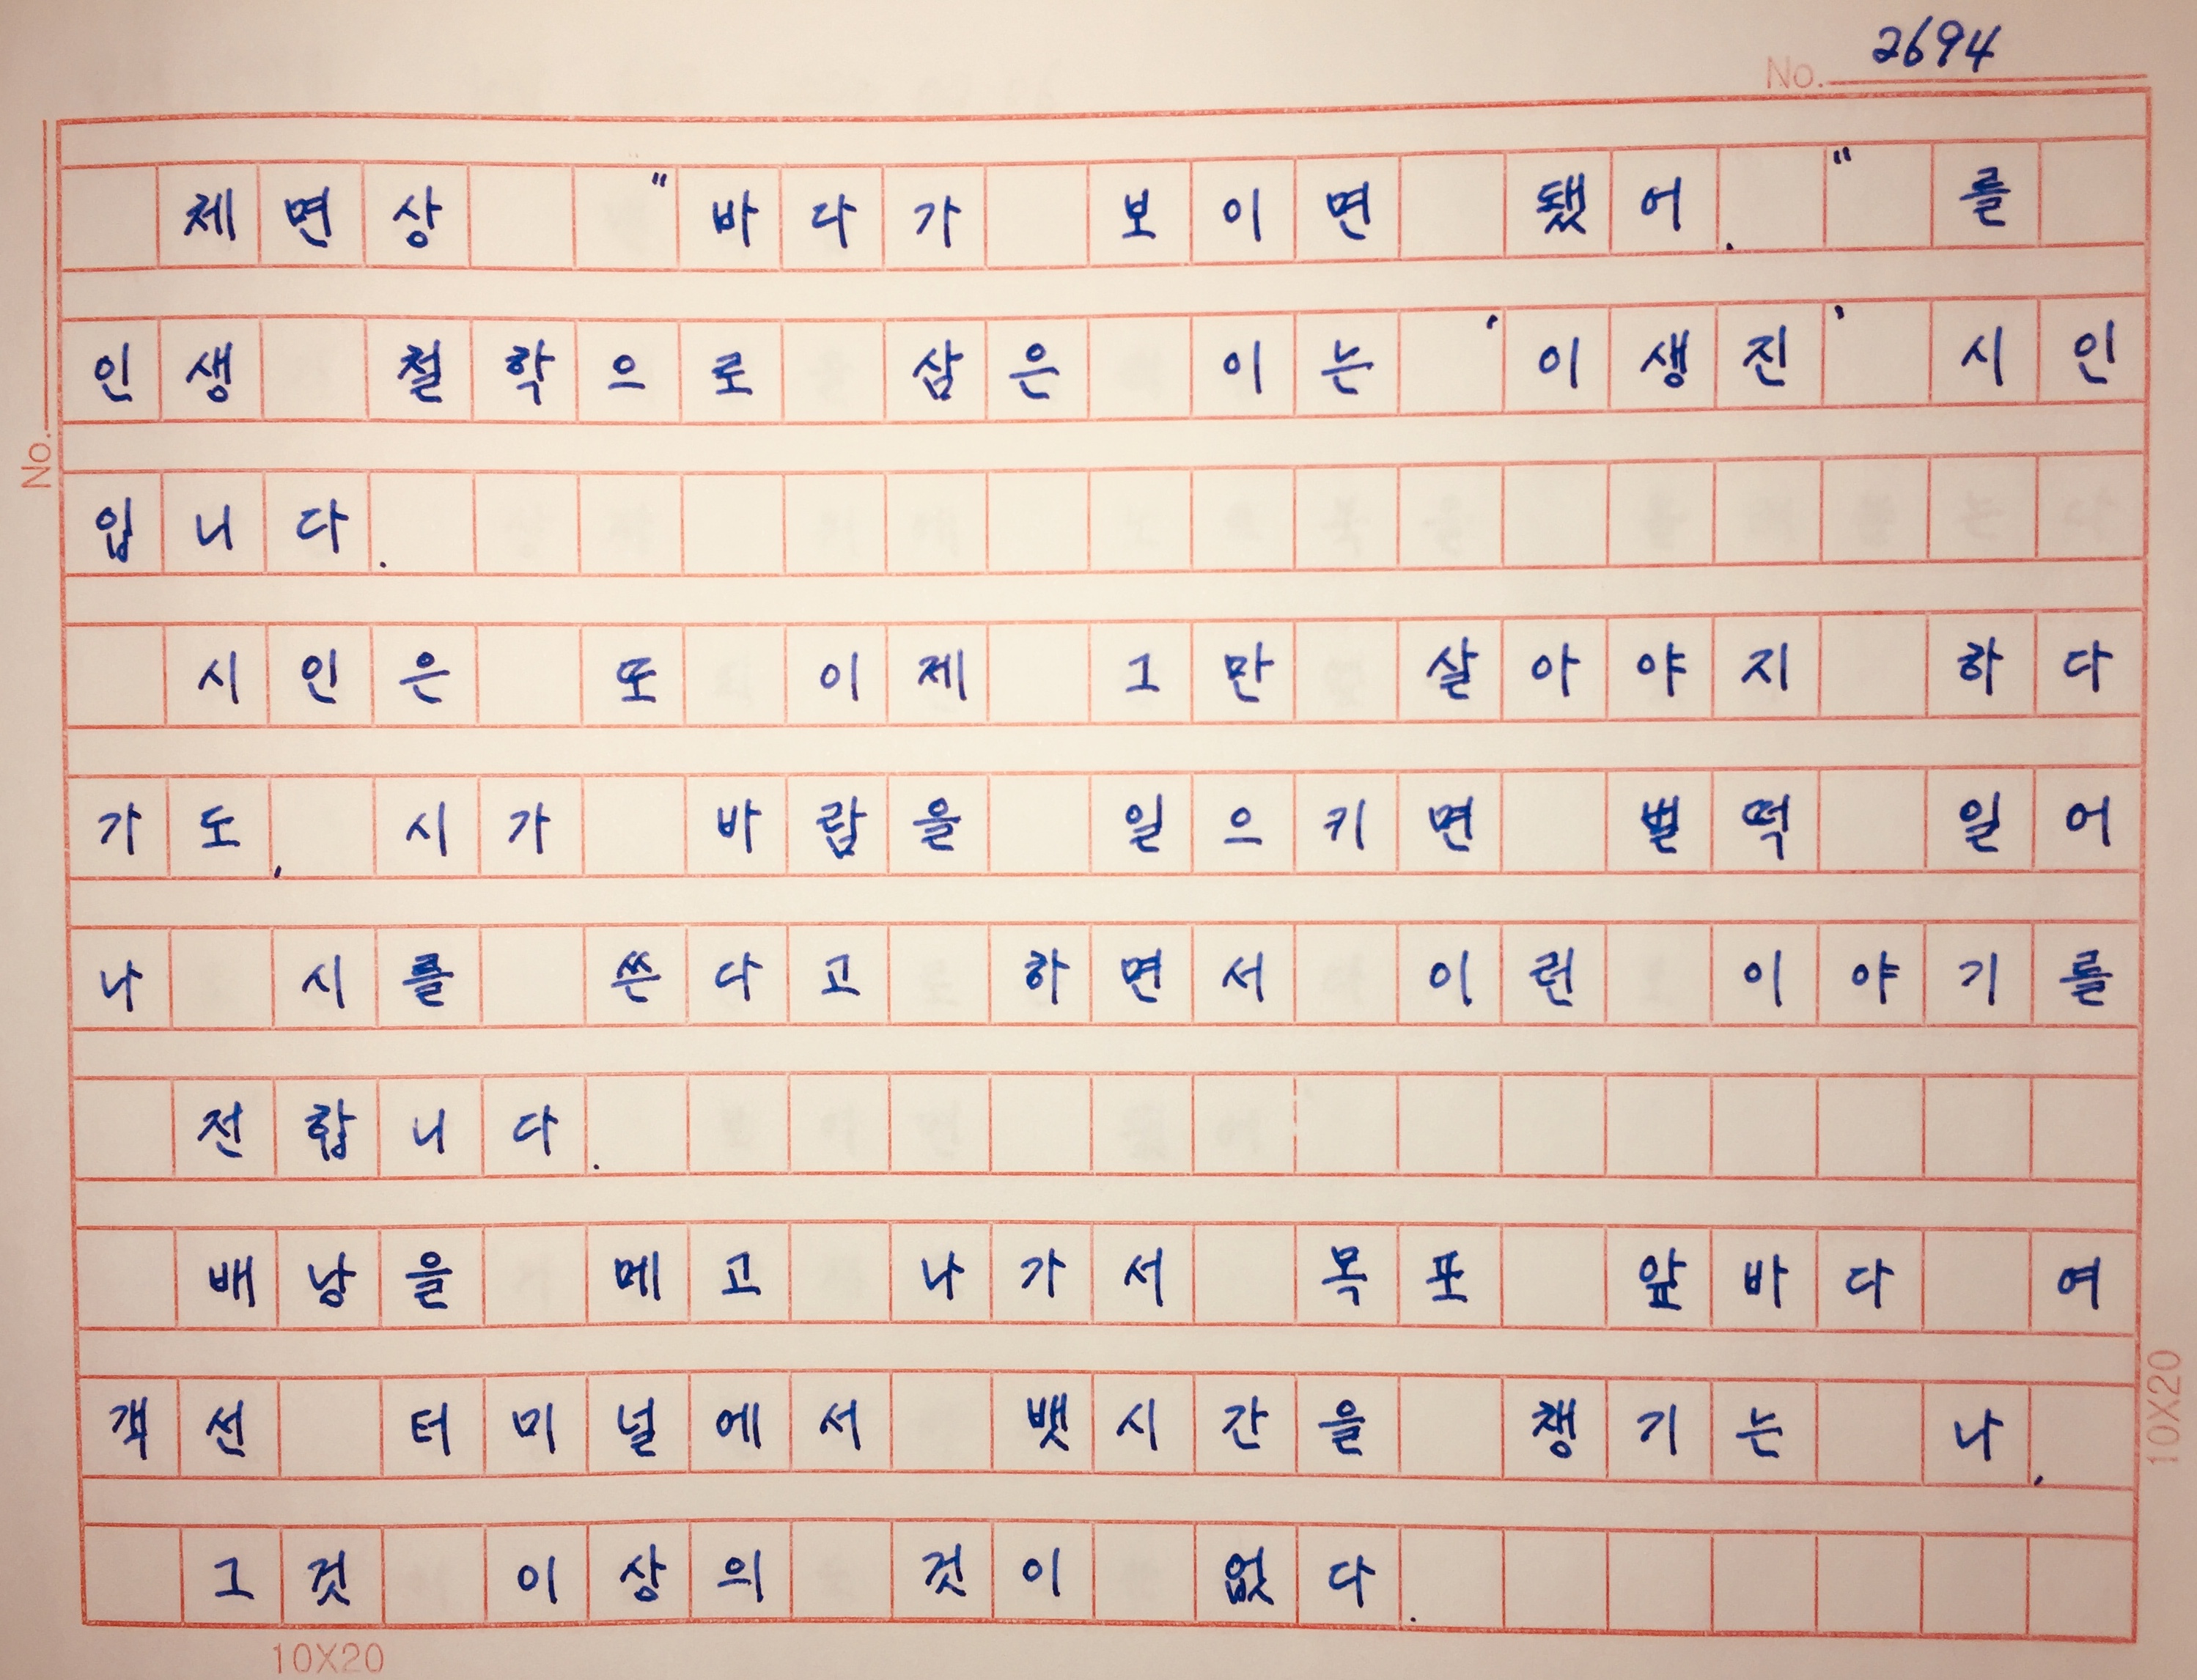 No. 2694
체면상 "바다가 보이면 됐어." 를
인생 철학으로 삼은 이는 '이생진' 시인
입니다.
시인은 또 이제 그만 살아야지 하다
가도, 시가 바람을 일으키면 벌떡 일어
나 시를 쓴다고 하면서 이런 이야기를
전합니다.
배낭을 메고 나가서 목포 앞바다 여
객선 터미널에서 뱃시간을 챙기는 나,
그것 이상의 것이 없다.
No.
10X20
10X20